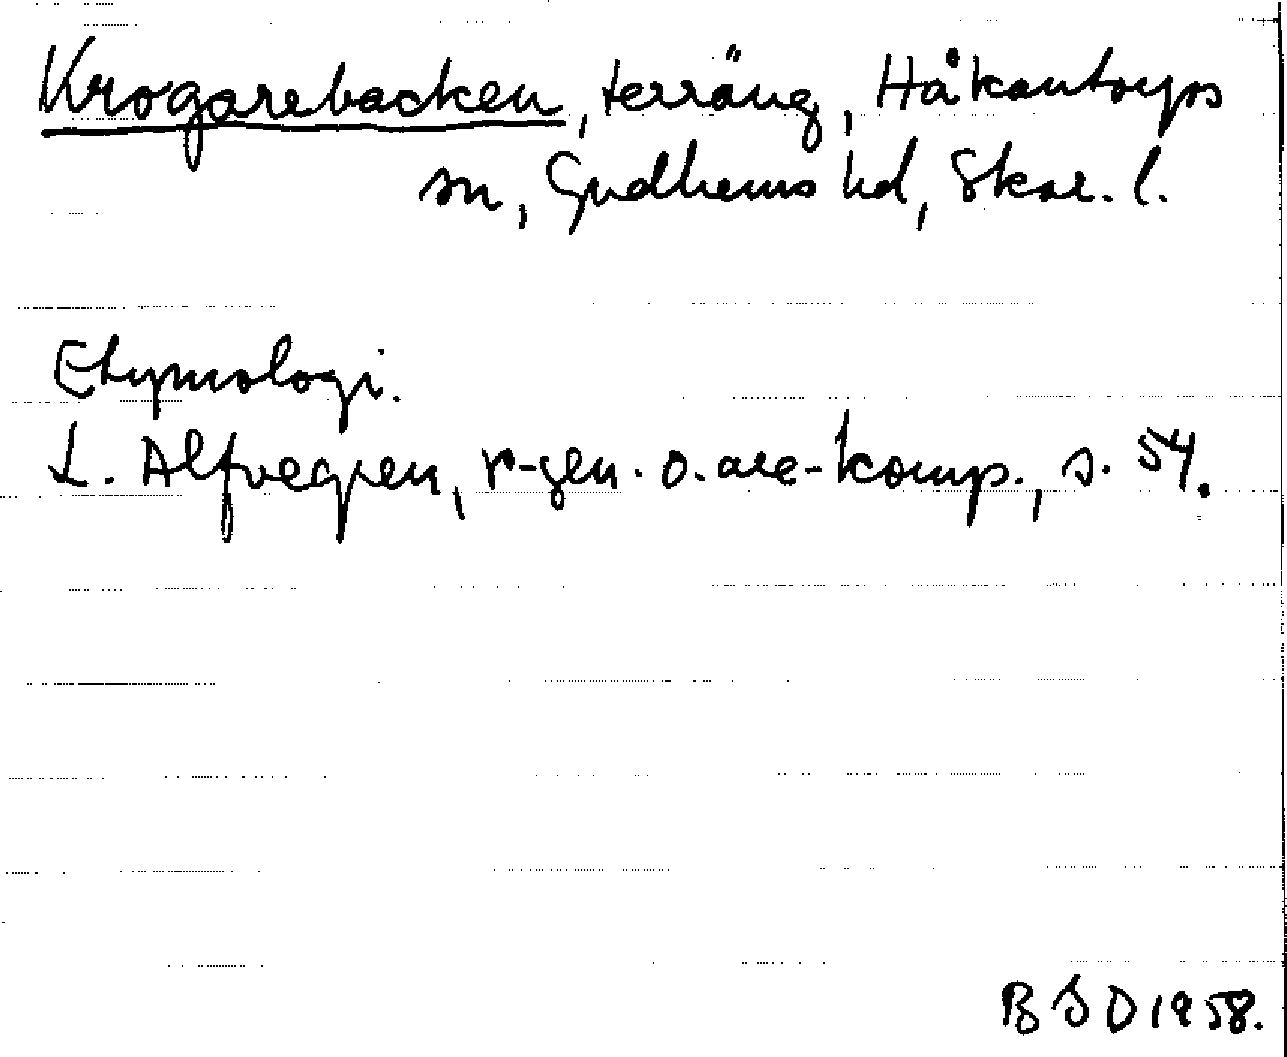 Krogarebacken, terräng, Håkantorps
sn, Gudhems hd, Skar. l.
Etymologi.
L. Alfvegren, r-gen. o. are-komp., s. 54.
B S D 1958.